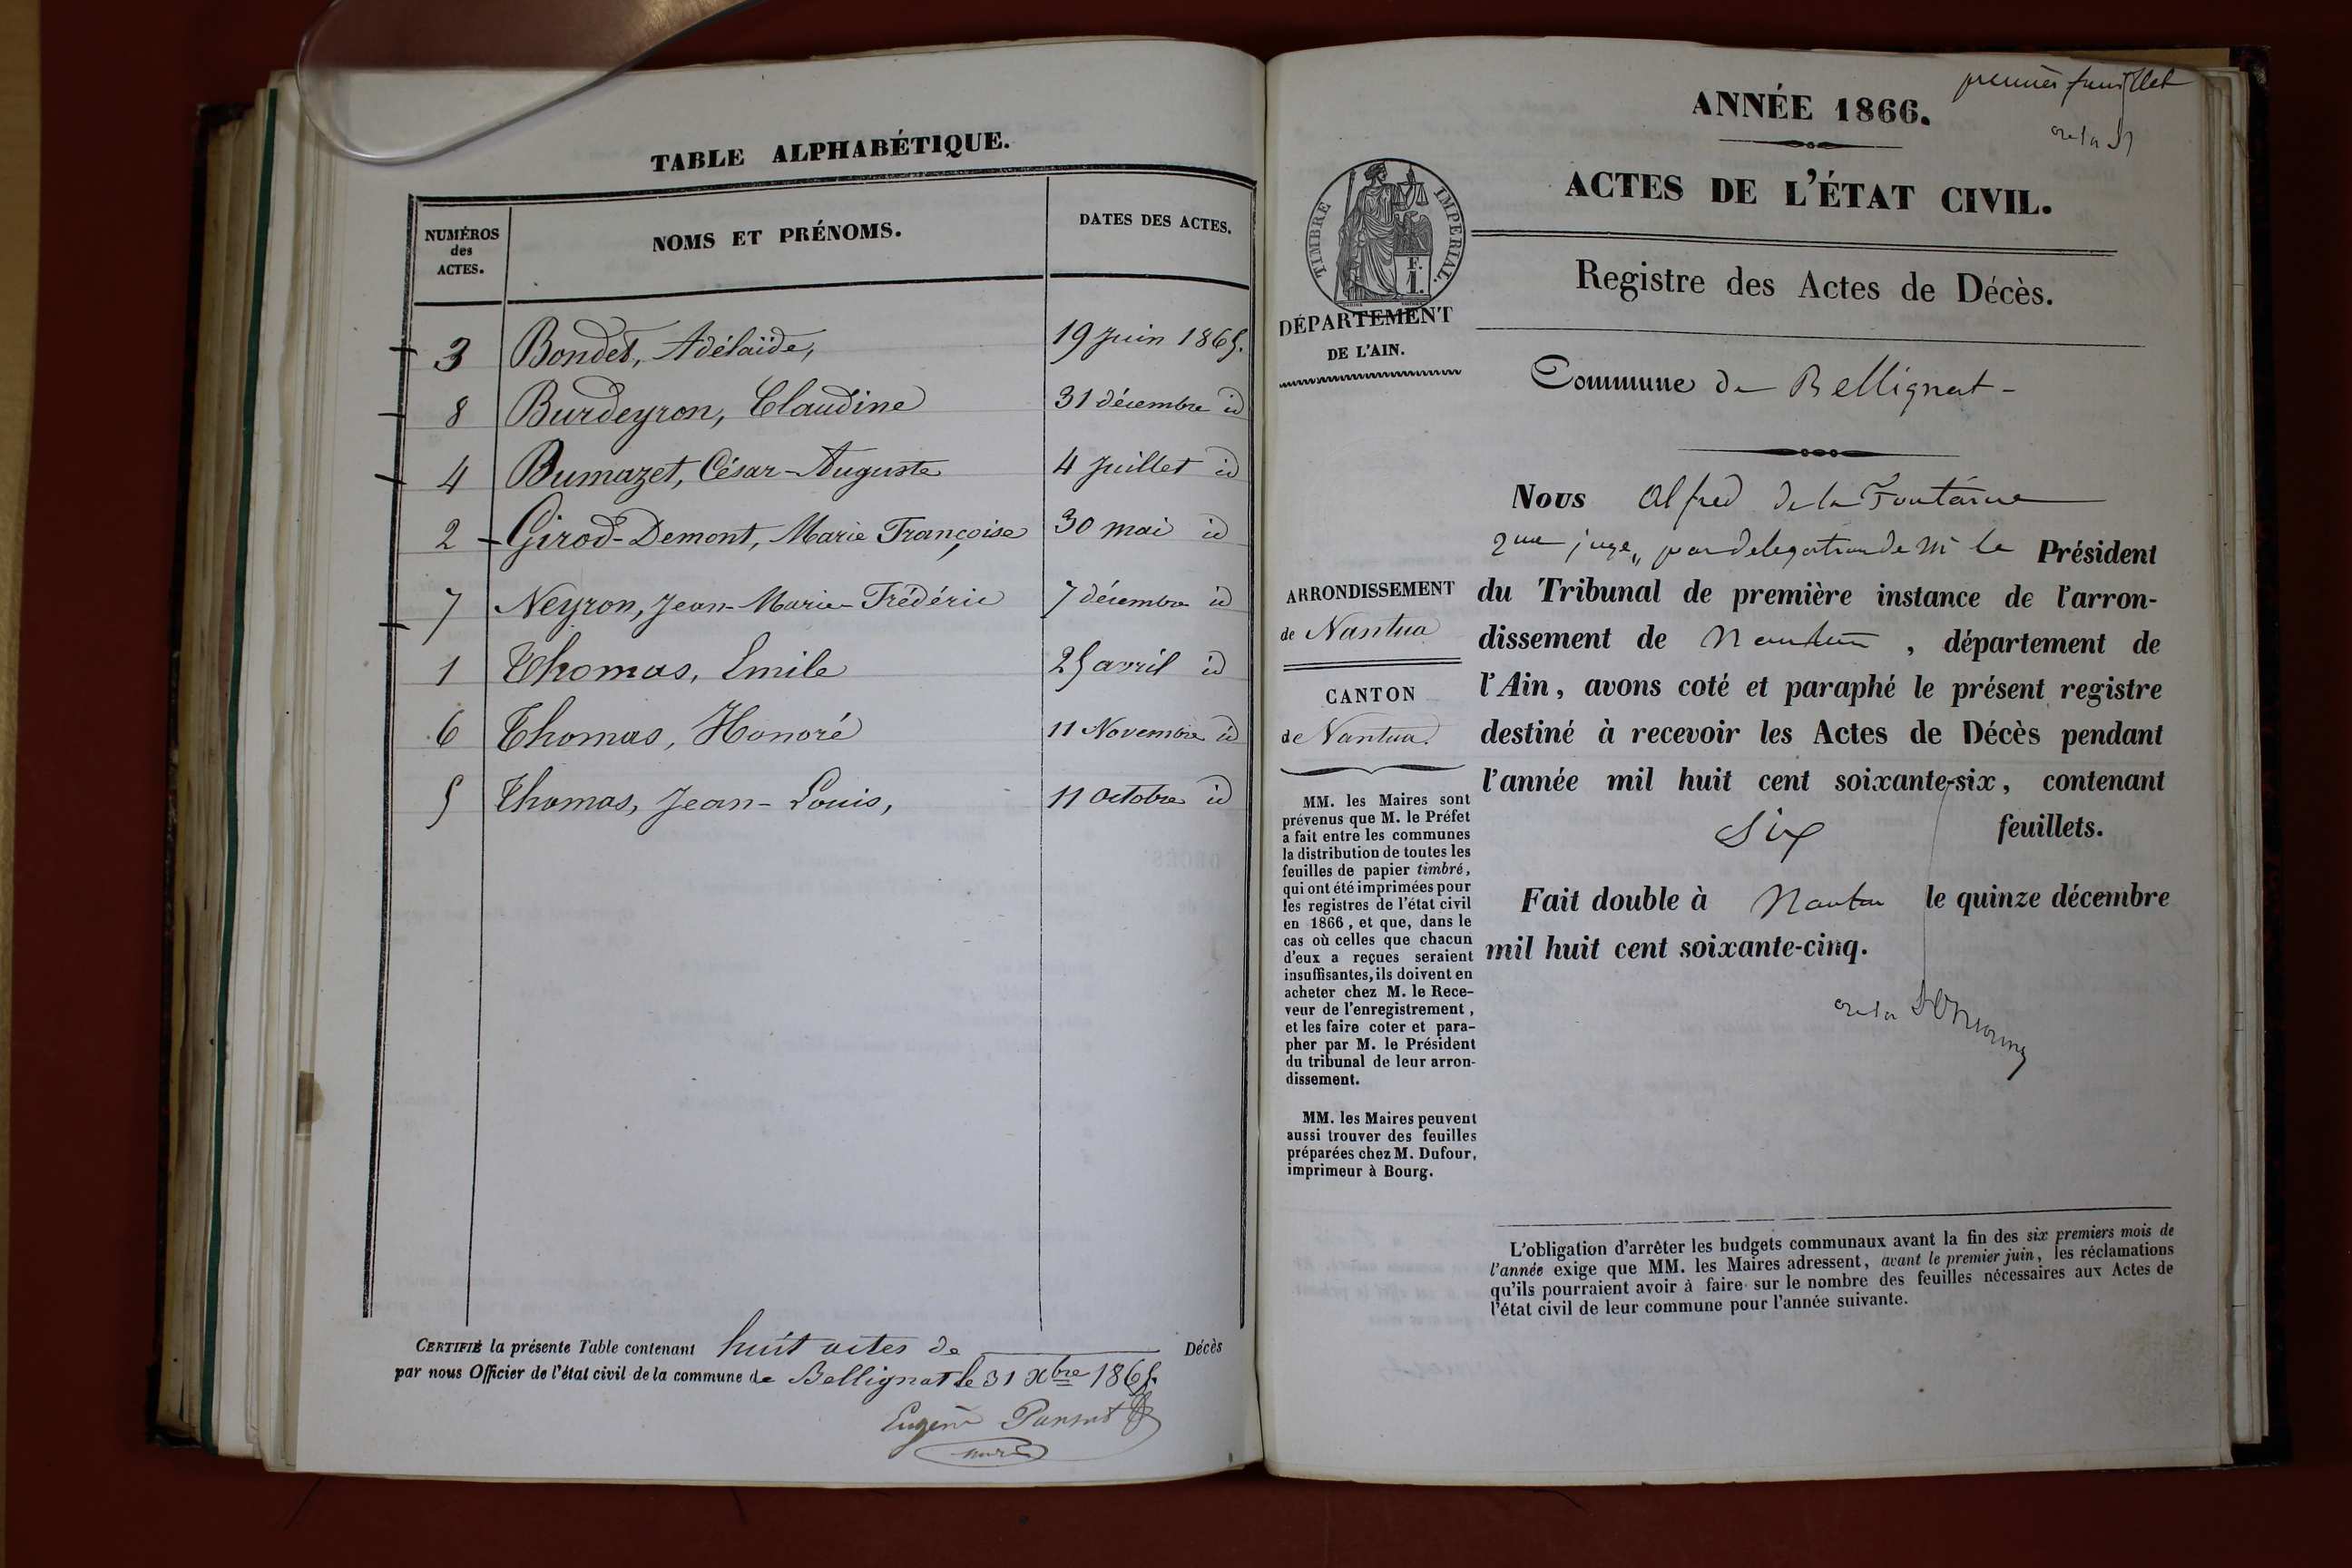 TABLE ALPHABÉTIQUE.
NUMÉROS des ACTES. NOMS ET PRÉNOMS. DATES DES ACTES.
3 Bondet, Adélaïde, 19 Juin 1865.
8 Burdeyron, Claudine 31 décembre id
4 Dumazet, César-Auguste 4 Juillet id
2 Girod-Demont, Marie Françoise 30 mai id
7 Neyron, Jean-Marie-Frédéric 7 décembre id
1 Thomas, Emile 25 avril id
6 Thomas, Honoré 11 Novembre id
5 Thomas, Jean-Louis, 11 Octobre id
CERTIFIÉ la présente Table contenant huit actes de Décès
par nous Officier de l'état civil de la commune de Bellignat le 31 Xbre 1865.
Eugène
maire
premier feuillet
ANNÉE 1866.
ACTES DE L'ÉTAT CIVIL.
Registre des Actes de Décès.
TIMBRE IMPERIAL.
F.
1.
DÉPARTEMENT
DE L'AIN.
Commune de Bellignat
ARRONDISSEMENT
de Nantua
CANTON
de Nantua.
MM. les Maires sont
prévenus que M. le Préfet
a fait entre les communes
la distribution de toutes les
feuilles de papier timbré,
qui ont été imprimées pour
les registres de l'état civil
en 1866, et que, dans le
cas où celles que chacun
d'eux a reçues seraient
insuffisantes, ils doivent en
acheter chez M. le Rece-
veur de l'enregistrement,
et les faire coter et para-
pher par M. le Président
du tribunal de leur arron-
dissement.
MM. les Maires peuvent
aussi trouver des feuilles
préparées chez M. Dufour,
imprimeur à Bourg.
Nous Alfred de la Fontaine
2me juge, par delegation de Mr le Président
du Tribunal de première instance de l'arron-
dissement de Nantua, département de
l'Ain, avons coté et paraphé le présent registre
destiné à recevoir les Actes de Décès pendant
l'année mil huit cent soixante-six, contenant
six feuillets.
Fait double à Nantua le quinze décembre
mil huit cent soixante-cinq.
L'obligation d'arrêter les budgets communaux avant la fin des six premiers mois de
l'année exige que MM. les Maires adressent, avant le premier juin, les réclamations
qu'ils pourraient avoir à faire sur le nombre des feuilles nécessaires aux Actes de
l'état civil de leur commune pour l'année suivante.